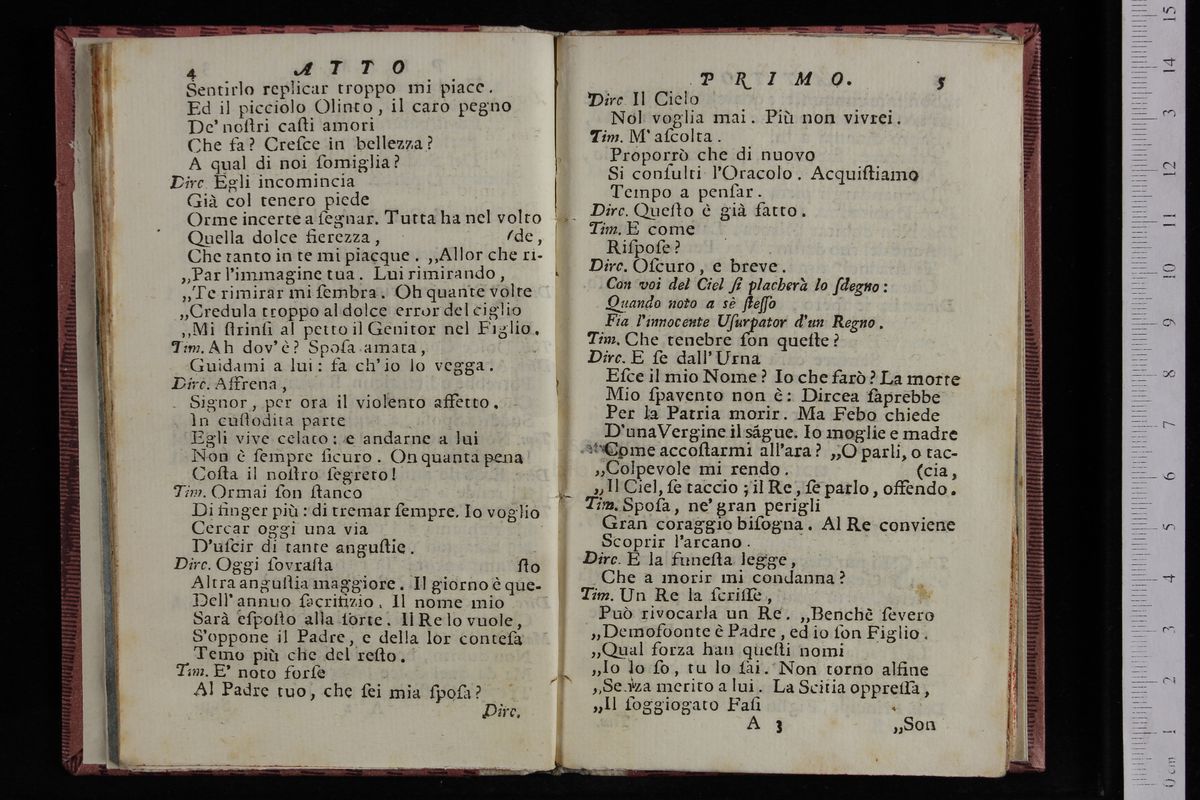 4 ATTO
Sentirlo replicar troppo mi piace.
Ed il picciolo Olinto, il caro pegno
De' noſtri caſti amori
Che fa? Creſce in bellezza?
A qual di noi ſomiglia?
Dirc. Egli incomincia
Già col tenero piede
Orme incerte a ſegnar. Tutta ha nel volto
Quella dolce fierezza, (de,
Che tanto in te mi piacque. ,,Allor che ri-
,,Par l'immagine tua. Lui rimirando,
,,Te rimirar mi ſembra. Oh quante volte
,,Credula troppo al dolce error del ciglio
,,Mi ſtrinſi al petto il Genitor nel Figlio.
Tim. Ah dov'è? Spoſa amata,
Guidami a lui: fa ch'io lo vegga.
Dirc. Affrena,
Signor, per ora il violento affetto.
In cuſtodita parte
Egli vive celato: e andarne a lui
Non è ſempre ſicuro. On quanta pena
Coſta il noſtro ſegreto!
Tim. Ormai ſon ſtanco
Di finger più: di tremar ſempre. Io voglio
Cercar oggi una via
D'uſcir di tante anguſtie.
Dirc. Oggi ſovraſta ſto
Altra anguſtia maggiore. Il giorno è que-
Dell' annuo ſacrifizio. Il nome mio
Sarà eſpoſto alla ſorte. Il Re lo vuole,
S'oppone il Padre, e della lor conteſa
Temo più che del reſto.
Tim. E' noto forſe
Al Padre tuo, che ſei mia ſpoſa?
Dirc.
PRIMO. 5
Dirc Il Cielo
Nol voglia mai. Più non vivrei.
Tim. M' aſcolta.
Proporrò che di nuovo
Si conſulti l'Oracolo. Acquiſtiamo
Tempo a penſar.
Dirc. Queſto è già fatto.
Tim. E come
Riſpoſe?
Dirc. Oſcuro, e breve.
Con voi del Ciel ſi placherà lo ſdegno:
Quando noto a sè ſteſſo
Fia l'innocente Uſurpator d'un Regno.
Tim. Che tenebre ſon queſte?
Dirc. E ſe dall' Urna
Eſce il mio Nome? Io che farò? La morte
Mio ſpavento non è: Dircea ſaprebbe
Per la Patria morir. Ma Febo chiede
D'una Vergine il ságue. Io moglie e madre
Come accoſtarmi all'ara? ,,O parli, o tac-
,,Colpevole mi rendo. (cia,
,,Il Ciel, ſe taccio; il Re, ſe parlo, offendo.
Tim. Spoſa, ne' gran perigli
Gran coraggio biſogna. Al Re conviene
Scoprir l'arcano.
Dirc. E la funeſta legge,
Che a morir mi condanna?
Tim. Un Re la ſcriſſe,
Può rivocarla un Re. ,,Benchè ſevero
,,Demofoonte è Padre, ed io ſon Figlio.
,,Qual forza han queſti nomi
,,Io lo ſo, tu lo ſai. Non torno alfine
,,Senza merito a lui. La Scitia oppreſſa,
,,Il ſoggiogato Faſi
A 3 ,,Son
0 cm 1 2 3 4 5 6 7 8 9 10 11 12 13 14 15